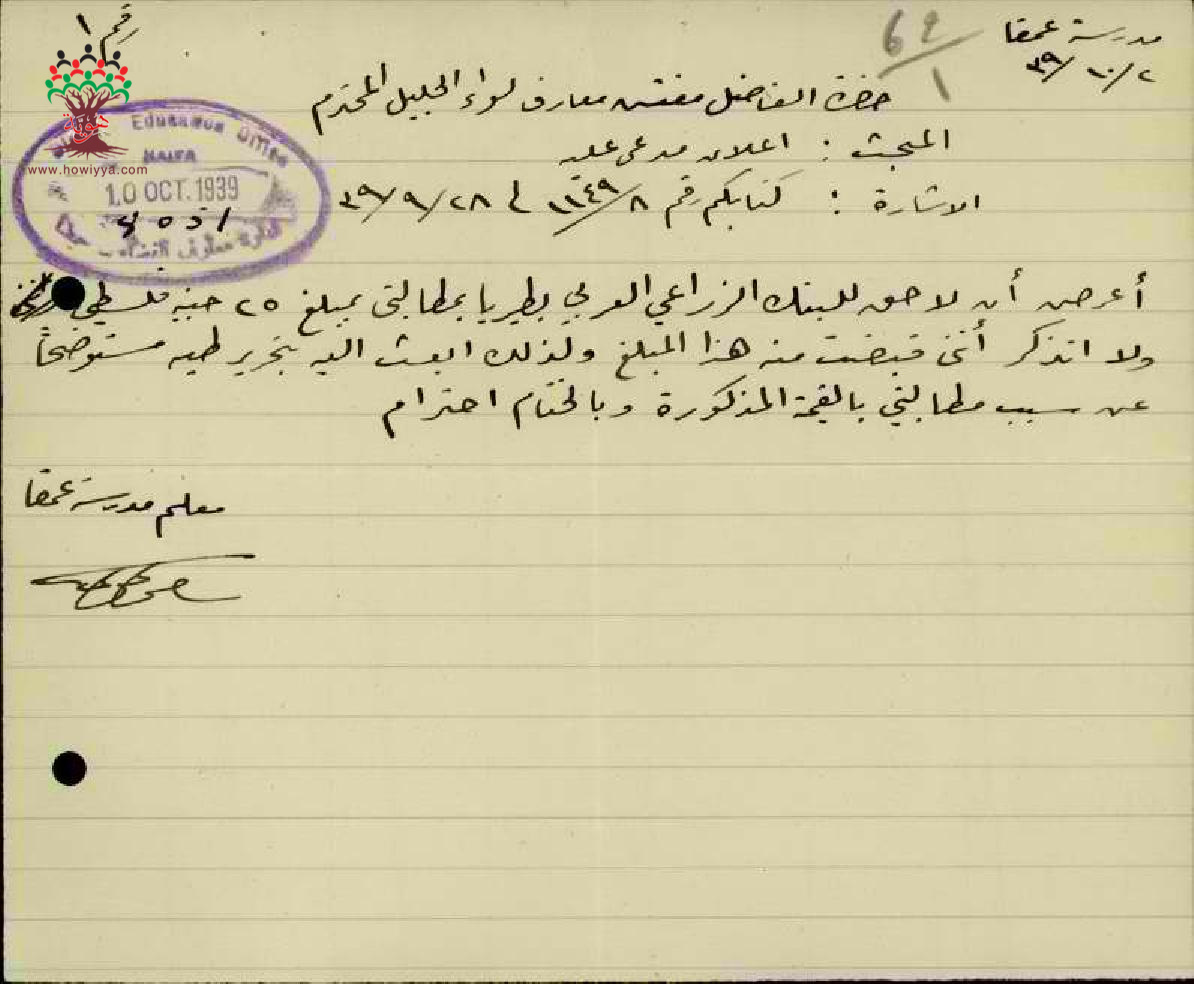 رقم ١
مدرسة عمقا
٢/١٠/٣٩
62/1
حضرة الفاضل مفتش معارف لواء الجليل المحترم
المبحث : اعلان مدعى عليه
الاشارة : كتابكم رقم ٨/١١٤٩ ٢٨/٩/٣٩
Education Office
HAIFA
10 OCT. 1939
www.howiyya.com
أعرض أن لا حق للبنك الزراعي العربي بطبريا بمطالبتي بمبلغ ٢٥ جنيه فلسطيني
ولا اتذكر أنني قبضت منه هذا المبلغ ولذلك ابعث اليه بتحرير طيه مستوضحاً
عن سبب مطالبتي بالقيمة المذكورة وبالختام احترام
معلم مدرسة عمقا